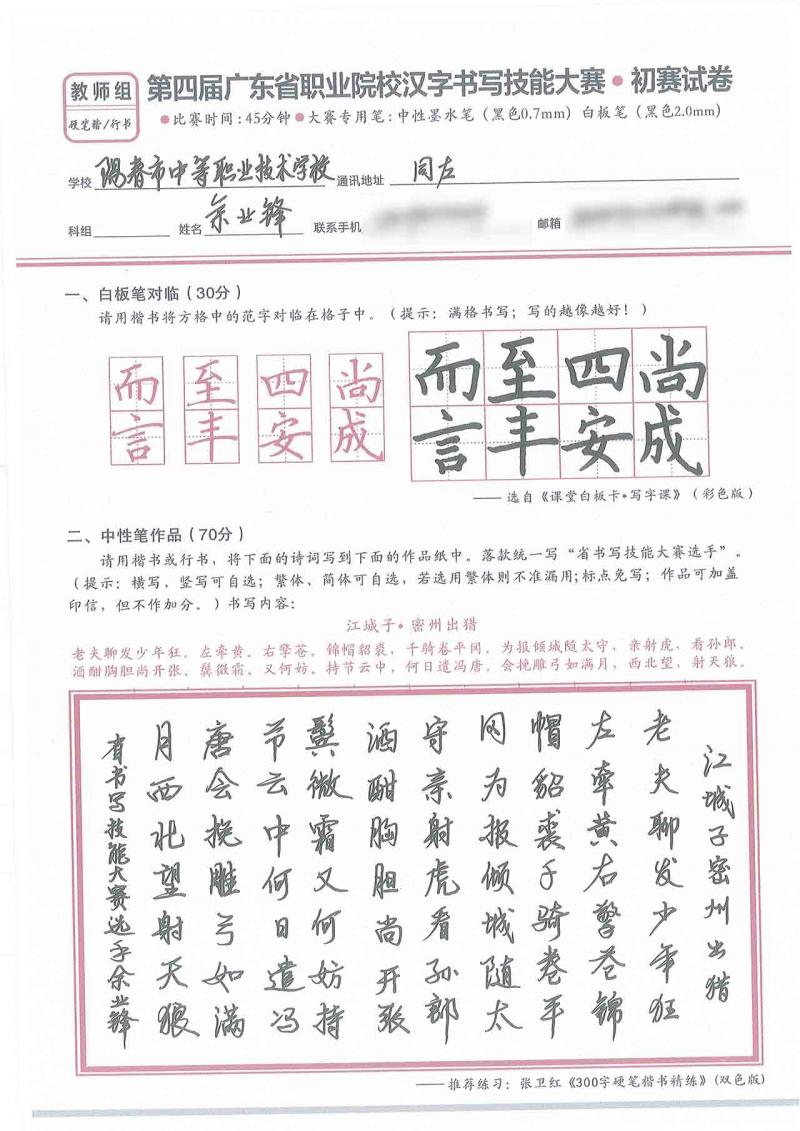 教师组
硬笔楷/行书
第四届广东省职业院校汉字书写技能大赛•初赛试卷
●比赛时间:45分钟●大赛专用笔:中性墨水笔(黑色0.7mm)白板笔(黑色2.0mm)
学校 阳春市中等职业技术学校 通讯地址 同左
科组 姓名 余业锋 联系手机 邮箱
一、白板笔对临(30分)
请用楷书将方格中的范字对临在格子中。(提示:满格书写;写的越像越好!)
而至四尚
言丰安成
而至四尚
言丰安成
——选自《课堂白板卡•写字课》(彩色版)
二、中性笔作品(70分)
请用楷书或行书,将下面的诗词写到下面的作品纸中。落款统一写“省书写技能大赛选手”。
(提示:横写、竖写可自选;繁体、简体可自选,若选用繁体则不准漏用;标点免写;作品可加盖
印信,但不作加分。)书写内容:
江城子•密州出猎
老夫聊发少年狂。左牵黄。右擎苍。锦帽貂裘,千骑卷平冈。为报倾城随太守,亲射虎,看孙郎。
酒酣胸胆尚开张。鬓微霜。又何妨。持节云中,何日遣冯唐。会挽雕弓如满月,西北望,射天狼。
江城子密州出猎
老夫聊发少年狂
左牵黄右擎苍锦
帽貂裘千骑卷平
冈为报倾城随太
守亲射虎看孙郎
酒酣胸胆尚开张
鬓微霜又何妨持
节云中何日遣冯
唐会挽雕弓如满
月西北望射天狼
省书写技能大赛选手余业锋
——推荐练习:张卫红《300字硬笔楷书精练》(双色版)